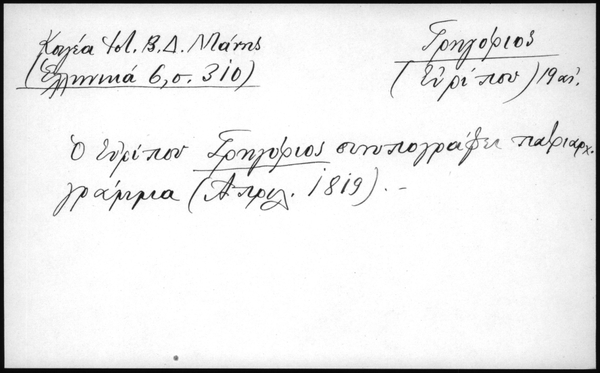 Κουγέα Ἱστ. Β.Δ. Μάνης
(Ἑλληνικά 6, σ. 310)
Γρηγόριος
(Εὐρίπου) 19 αἰ.
Ὁ Εὐρίπου Γρηγόριος συνυπογράφει πατριαρχ.
γράμμα (Ἀπριλ. 1819). –